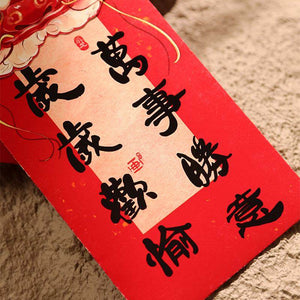 萬事勝意
歲歲歡愉